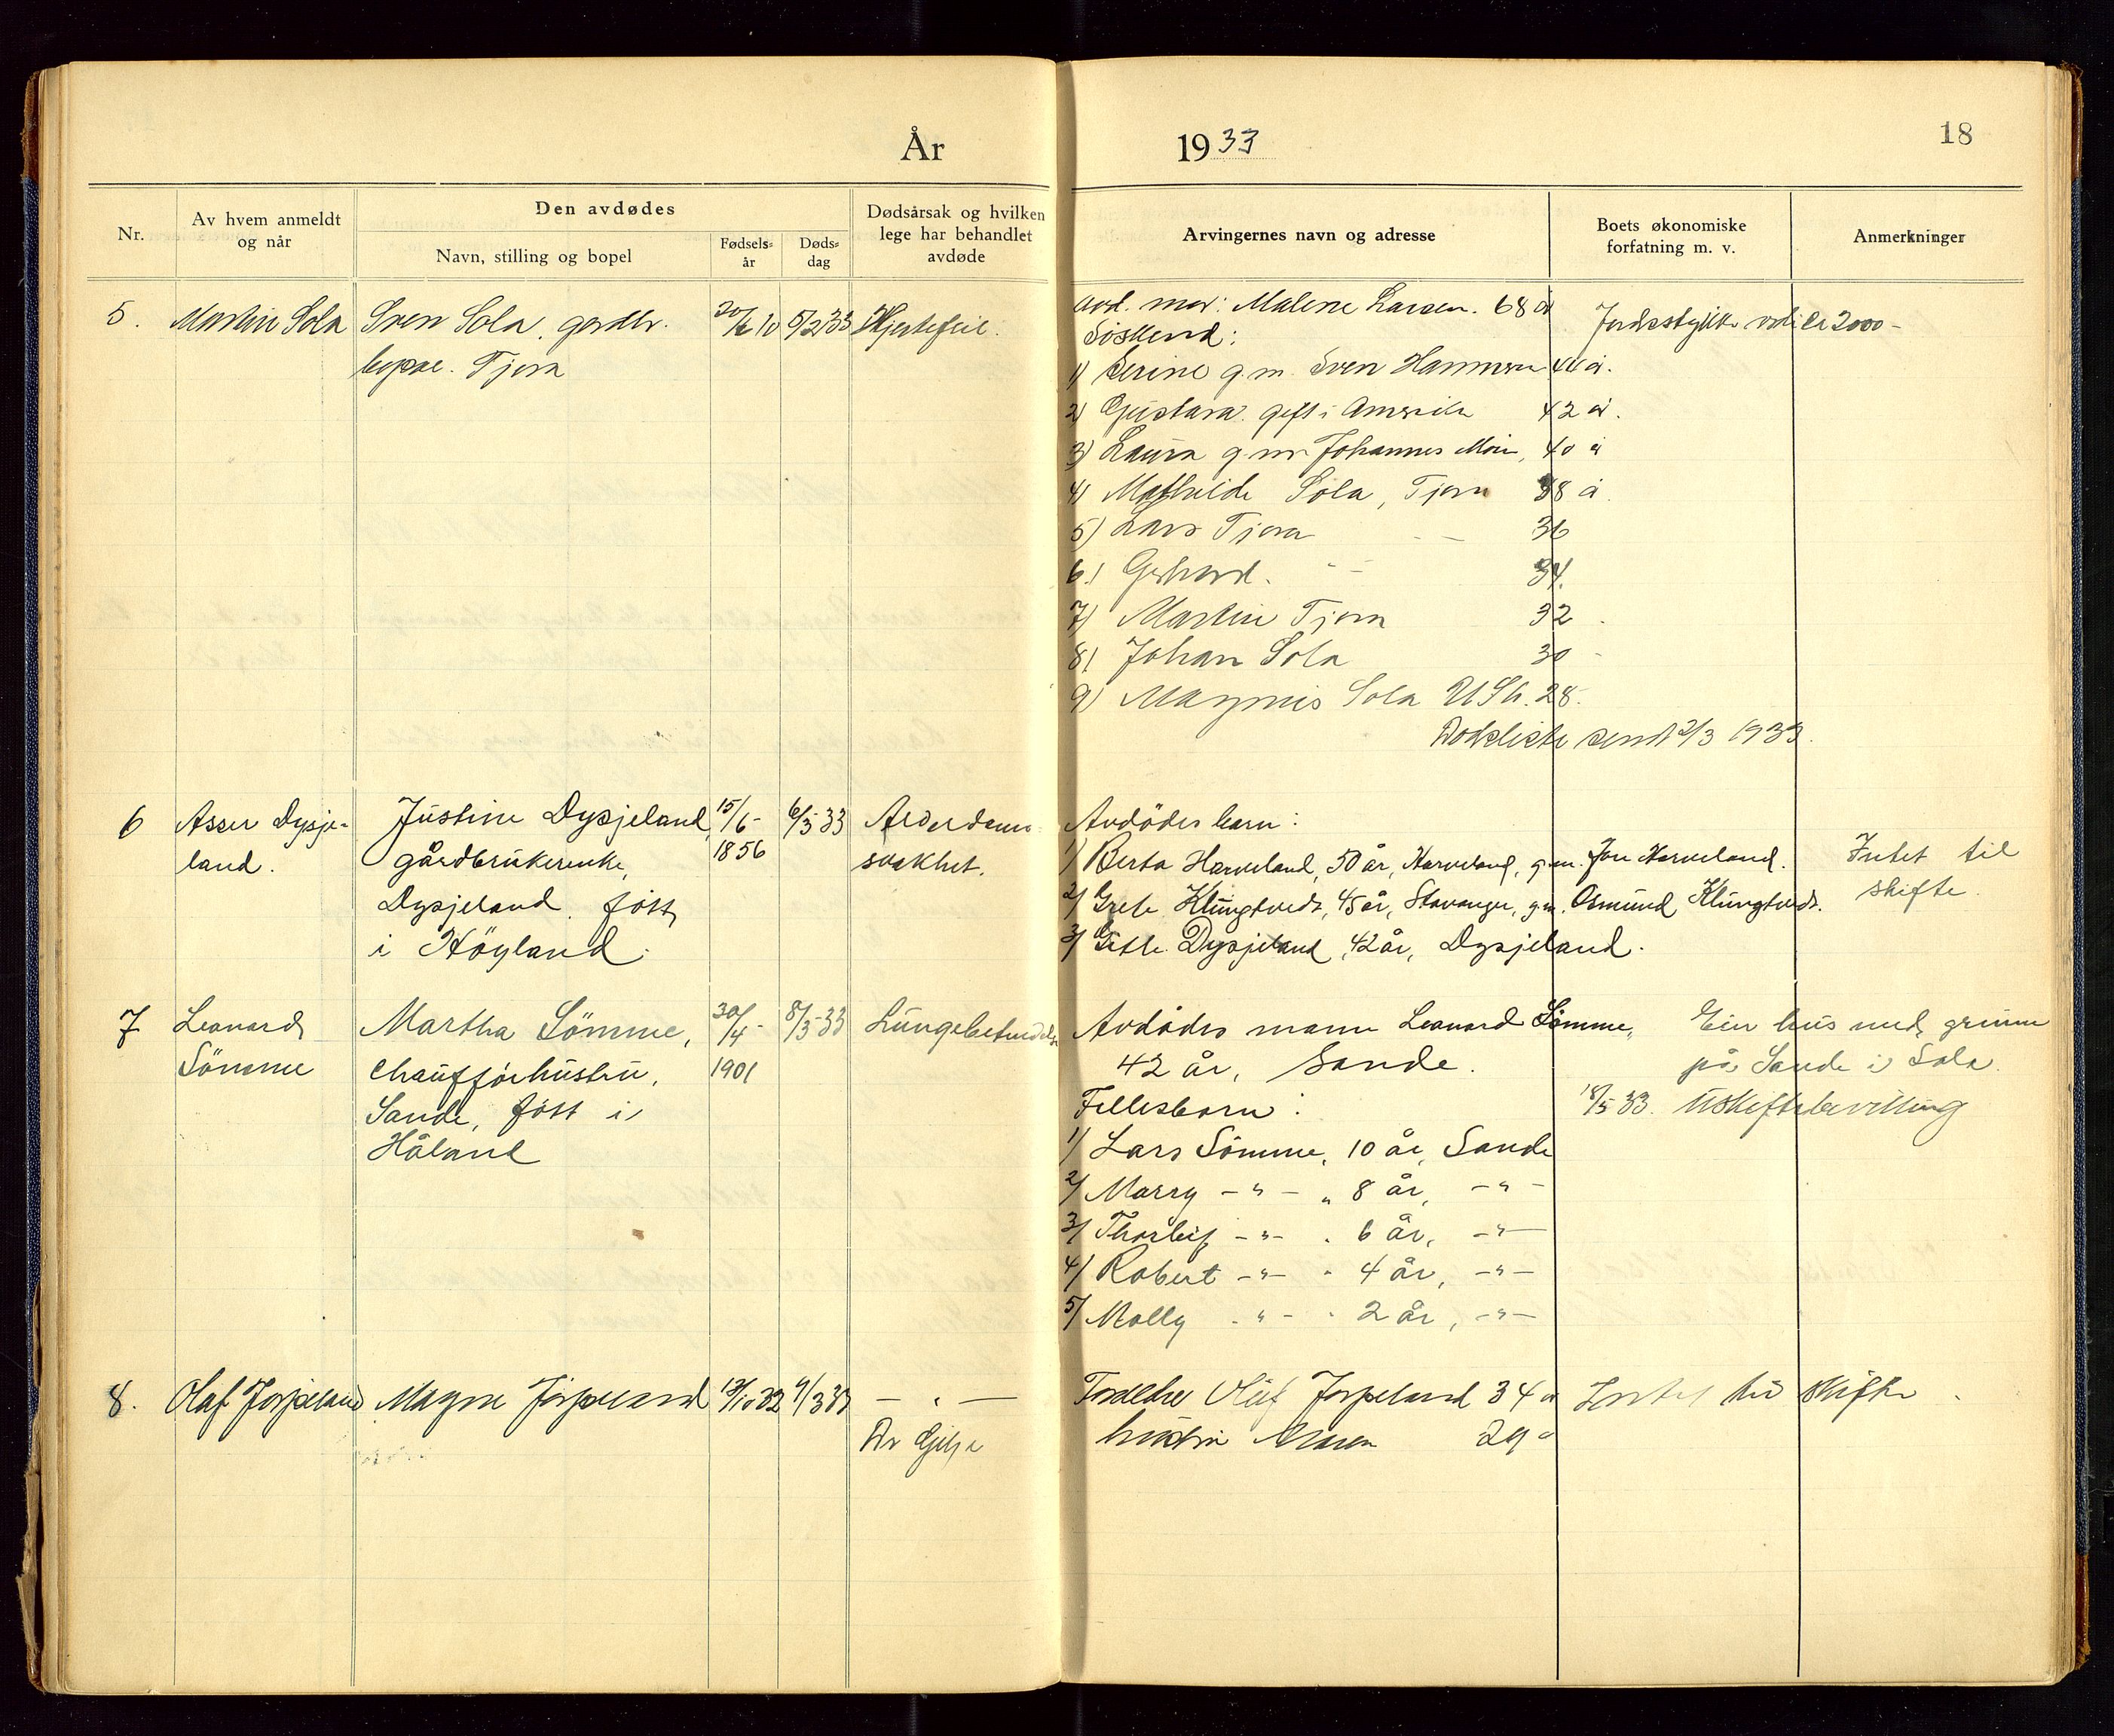 År 1933
18
Nr.
Av hvem anmeldt
og når
Den avdødes
Navn, stilling og bopel
Fødsels-
år
Døds-
dag
Dødsårsak og hvilken
lege har behandlet
avdøde
Arvingernes navn og adresse
Boets økonomiske
forfatning m. v.
Anmerkninger
5. Martin Sola
Sven Sola
Tjora
5/2 33
Hjertefeil.
avd. mor: Malene Larsen. 68 år
Søskend:
1) Serine g.m. Sven Hammeren 44 å.
2) Gustava. gift i Amerika 42 å.
3) Laura g.m. Johannes 40 å
4) Mathilde Sola, Tjora 38 å.
5) Lars Tjora 36
6) Gerhard. 34.
7) Martin Tjora 32
8) Johan Sola 30
9) Magnus Sola USA. 28.
Dødsliste sendt 2/3 1933.
Jordstykke verdi ca 2000-
6
Asser Dysje-
land.
Justine Dysjeland,
gårdbrukerenke,
Dysjeland. født
i Höyland.
15/6-
1856
6/3-33
Alderdoms-
svakhet.
Avdødes barn:
1/ Berta Harveland, 50 år, Harveland, g.m. Jon Harveland.
2/ Grete Klungtvedt, 45 år, Stavanger, g.m. Osmund Klungtvedt.
3/ Gitle Dysjeland, 42 år, Dysjeland.
Intet til
skifte.
7
Leonard
Sömme
Martha Sömme,
Chaufførhustru,
Sande, født i
Håland
30/4-
1901
8/3-33
Lungebetendelse
Avdødes mann Leonard Sömme,
42 år, Sande.
Fellesbarn:
1/ Lars Sömme, 10 år, Sande
2/ Marry -"- " 8 år, -"-
3/ Thorleif -"- 6 år, -"-
4/ Robert -"- " 4 år, -"-
5/ Molly -"- 2 år, -"-
Eier hus med grunn
på Sande i Sola.
18/5 33. Uskiftebevilling
8. Olaf Jorpeland
Magne Jörpeland
13/10 32
9/3 33
— " —
Dr Gilje
Foreldre Olaf Jorpeland 34 å
hustru Maren 29 å
Intet til skifte.